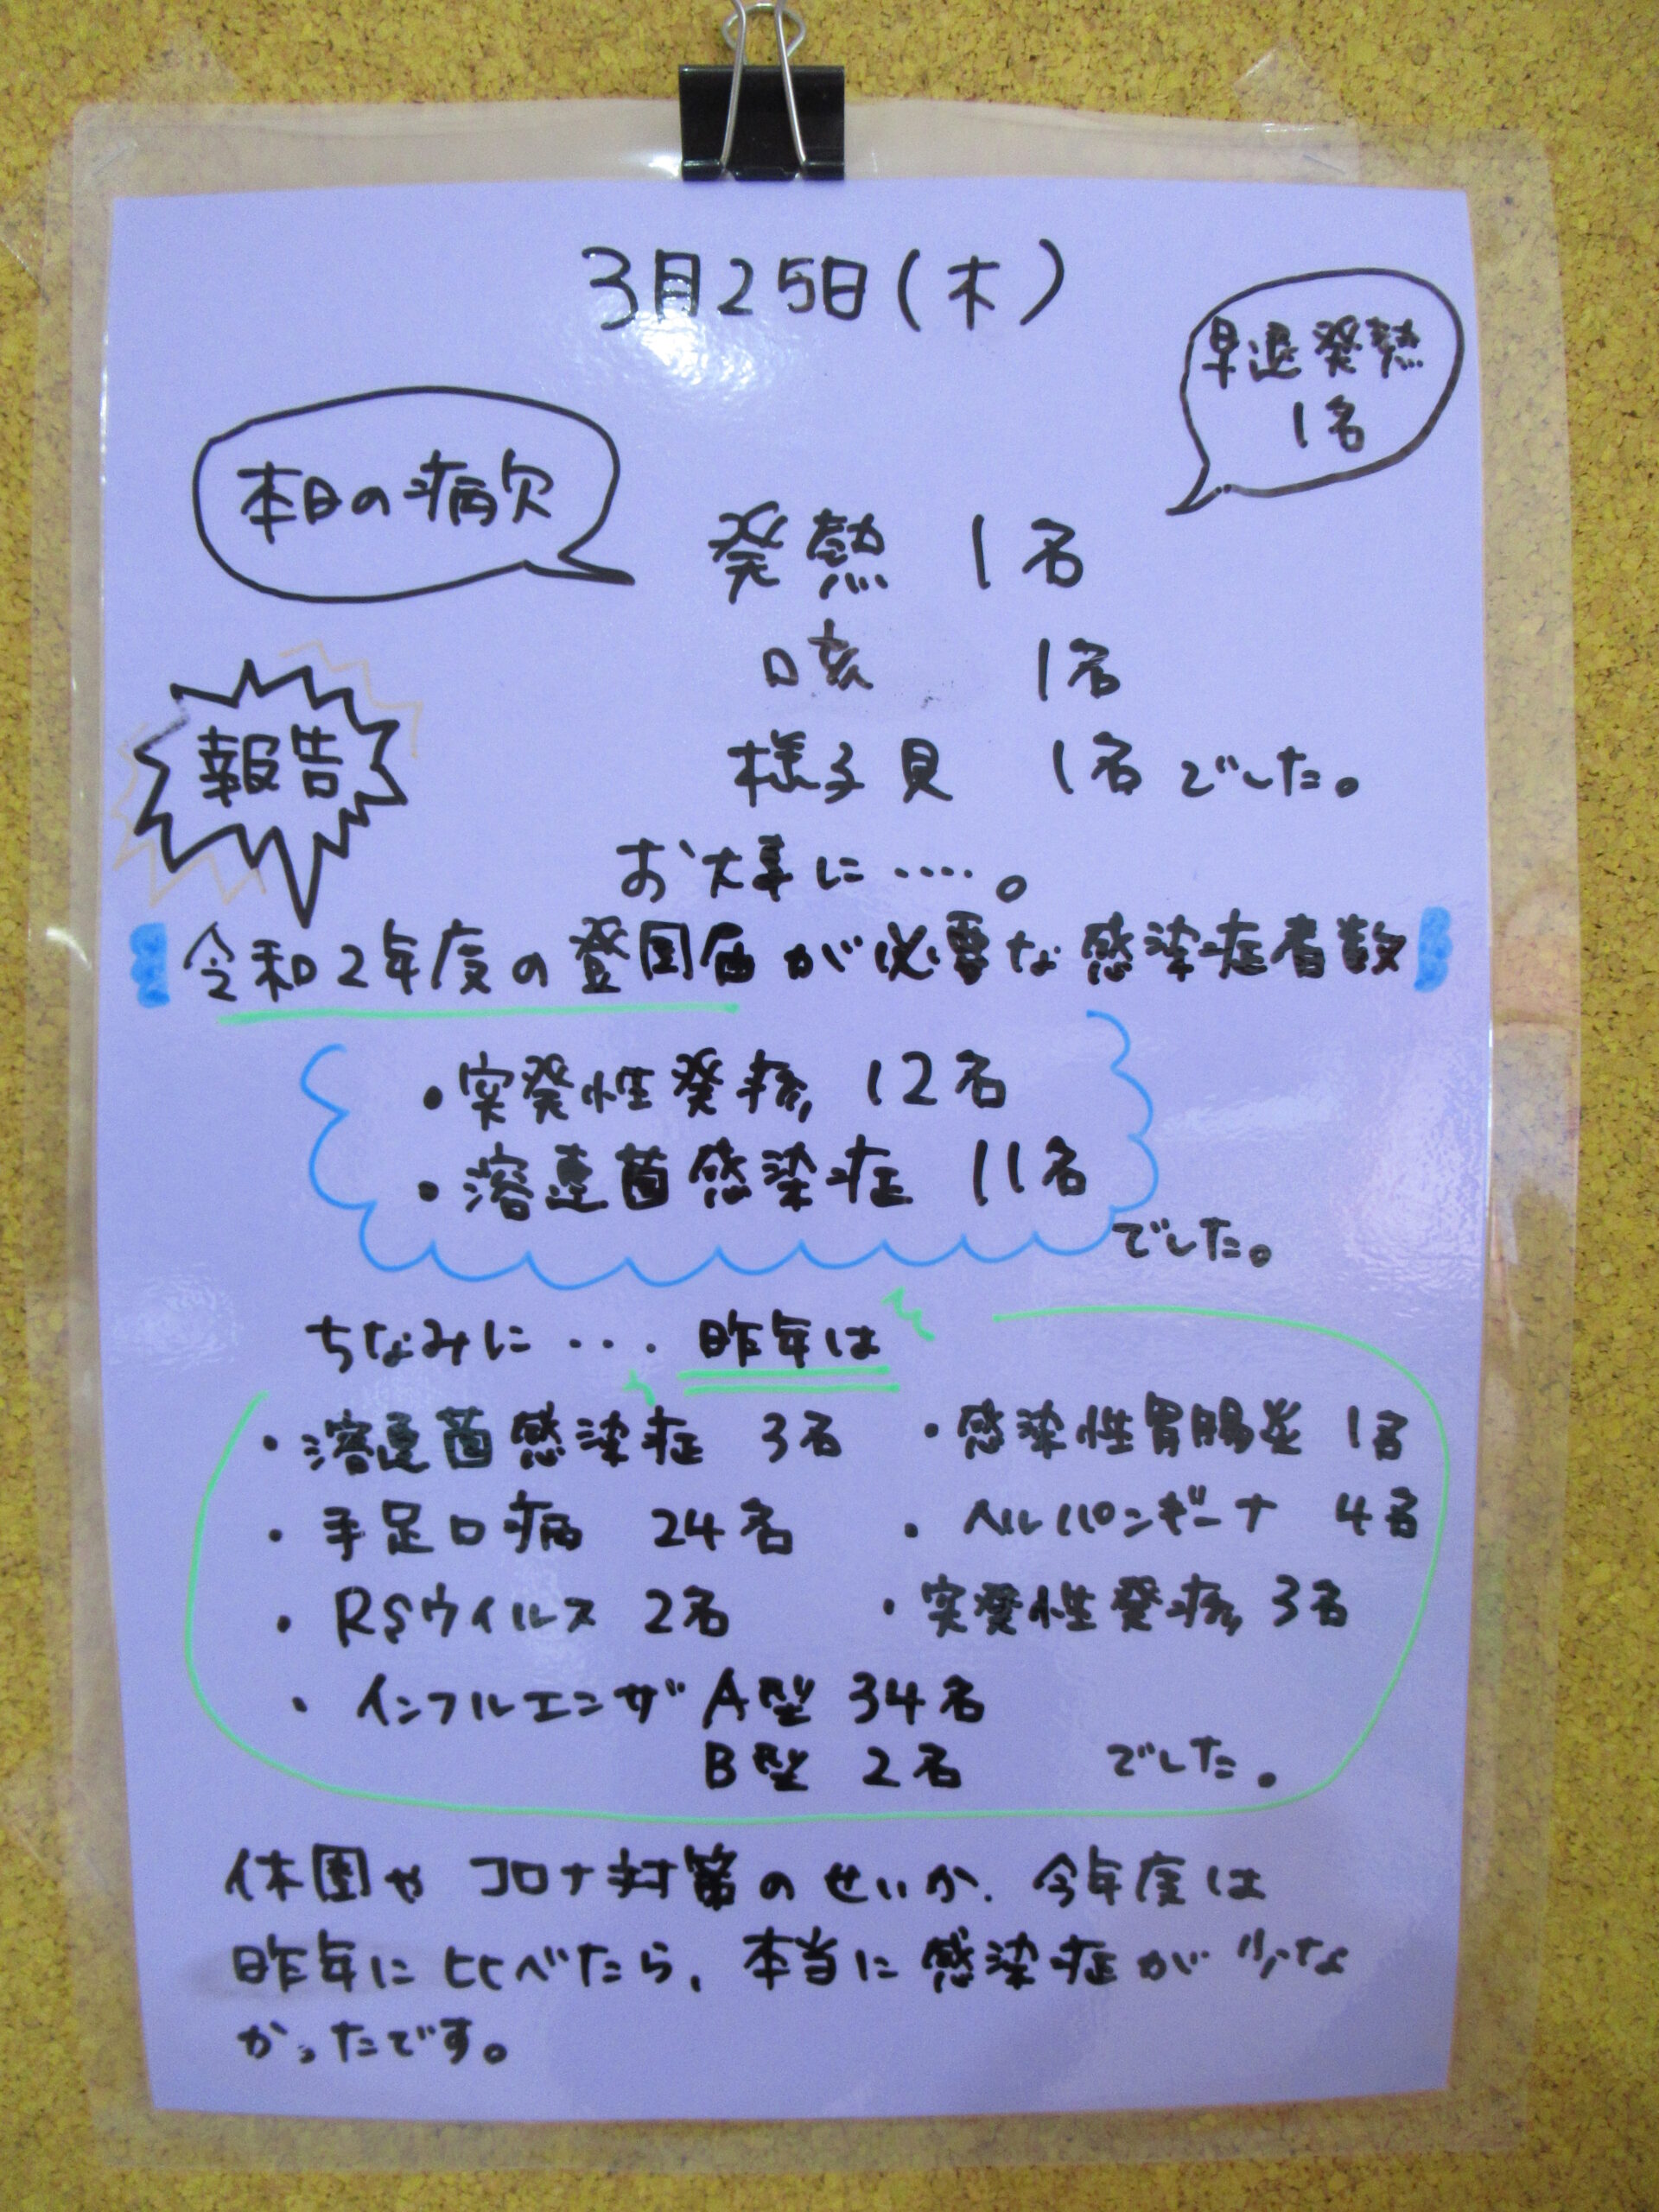 3月25日(木)
早退発熱
1名
本日の病欠
発熱 1名
咳 1名
様子見 1名でした。
お大事に・・・・。
報告
令和2年度の登園届が必要な感染症者数
・突発性発疹 12名
・溶連菌感染症 11名
でした。
ちなみに・・・昨年は
・溶連菌感染症 3名 ・感染性胃腸炎 1名
・手足口病 24名 ・ヘルパンギーナ 4名
・RSウイルス 2名 ・突発性発疹 3名
・インフルエンザ A型 34名
B型 2名 でした。
休園や コロナ対策のせいか、今年度は
昨年に比べたら、本当に感染症が少な
かったです。